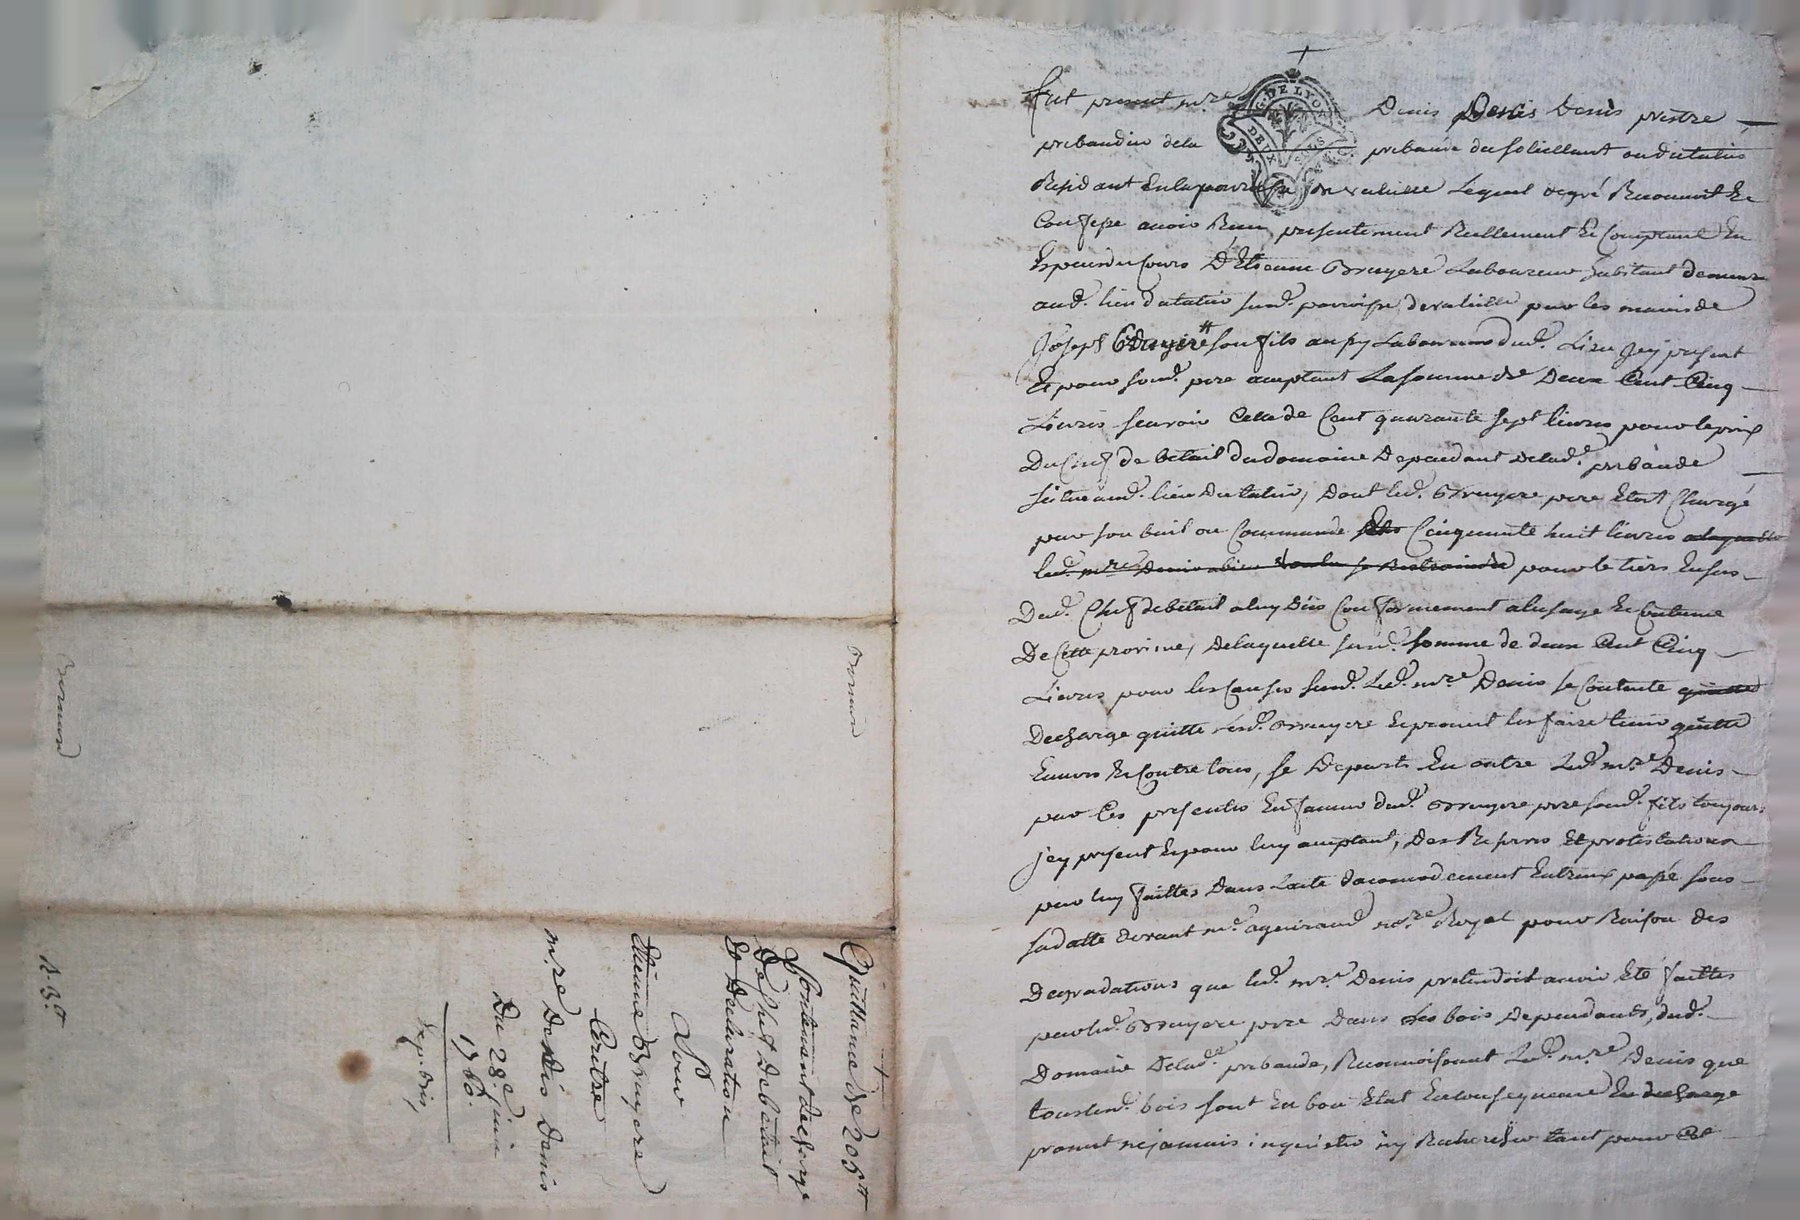 fut present m.re Denis Denis Denis prestre
prebandier dela prebande du soleillant ou dutaluis
Residant en la parroisse de valeille Lequel degré Reconnoit Et
Confesse avoir Receu presentement Reellement Et Comptant En
Especes du Cours D'Etienne Bruyere Laboureur habitant demeurt
aud.t lieu dutaluis susd.t parroisse devaleille par les mains de
Joseph Bruyere son fils aussy Laboureur dud.t Lieu Jcy present
Et pour sond.t pere acceptant La somme de Deux Cent Cinq
Livres scavoir Celle de Cent quarante sept livres pour le prix
Du Chef de betail du domaine Dependant Delad.e prebande
scitué aud.t lieu Dutaluis, Dont led.t Bruyere pere Etoit Chargé
par son bail ou Commande Cinquante huit livres alaquelle
led.t m.re Denis abien voulu se Restraindre pour le tiers Ensus
Dud.t Chef debetail aluy Dus Conformement alusage Et Coutume
De Cette province, Delaquelle susd.e somme de deux Cent Cinq
Livres pour les Causes susd. Led.t m.re Denis se Contente quitte
Decharge quitte Bruyere Et promet les faire tenir quitte
Envers Et Contre tous, se Depart En outre Led.t m.re Denis
par Ces presentes En faveur dud.t Bruyere pere sond.t fils toujours
Jcy present Et pour luy acceptant, Des Reserves Et protestations
par luy faittes Dans Lacte dacomodement Entreux passé sous
sadatte devant m.e no.re Royal pour Raison des
Degradations que led.t m.re Denis pretendoit avoir Eté faittes
par led.t Bruyere pere Dans les bois Dependants, dud.t
Domaine Delad.e prebande, Reconnoissant Led.t m.re Denis que
tous lesd. bois sont En bon Etat En consequence En decharge
promet ne jamais inquieter ny Rechercher tant pour Cet
Quittance de 205 ₶
Contenant decharge
De Chef De betail
Et Declaration
Pour
Etienne Bruyere
Contre
m.re Denis Denis
Du 28.e juin
1760.